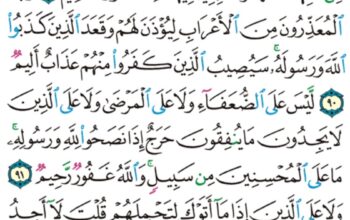 ٱلْمُعَذِّرُونَ مِنَ ٱلْأَعْرَابِ لِيُؤْذَنَ لَهُمْ وَقَعَدَ ٱلَّذِينَ كَذَبُوا۟
ٱللَّهَ وَرَسُولَهُۥ سَيُصِيبُ ٱلَّذِينَ كَفَرُوا۟ مِنْهُمْ عَذَابٌ أَلِيمٌ
٩٠ لَّيْسَ عَلَى ٱلضُّعَفَآءِ وَلَا عَلَى ٱلْمَرْضَىٰ وَلَا عَلَى ٱلَّذِينَ
لَا يَجِدُونَ مَا يُنفِقُونَ حَرَجٌ إِذَا نَصَحُوا۟ لِلَّهِ وَرَسُولِهِۦ
مَا عَلَى ٱلْمُحْسِنِينَ مِن سَبِيلٍ وَٱللَّهُ غَفُورٌ رَّحِيمٌ ٩١
وَلَا عَلَى ٱلَّذِينَ إِذَا مَآ أَتَوْكَ لِتَحْمِلَهُمْ قُلْتَ لَآ أَجِدُ